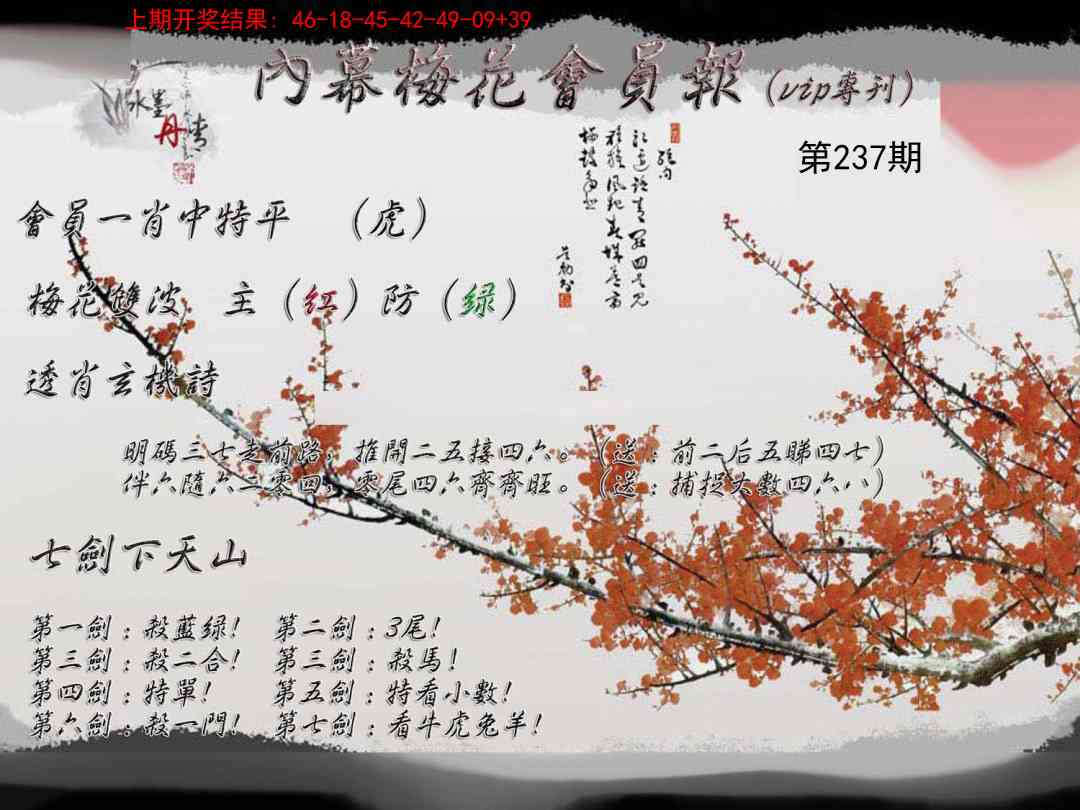 上期开奖结果: 46-18-45-42-49-09+39
內幕梅花會員報(vip專刊)
水墨
丹青
第237期
會員一肖中特平 （虎）
梅花雙波 主（红）防（绿）
透肖玄機詩
明碼三七走前路，推開二五接四六。（送：前二后五睇四七）
伴六隨六二零四，零尾四六齊齊旺。（送：捕捉大數四六八）
七劍下天山
第一劍：殺藍绿！ 第二劍：3尾！
第三劍：殺二合！ 第三劍：殺馬！
第四劍：特單！ 第五劍：特看小數！
第六劍：殺一門！ 第七劍：看牛虎兔羊！